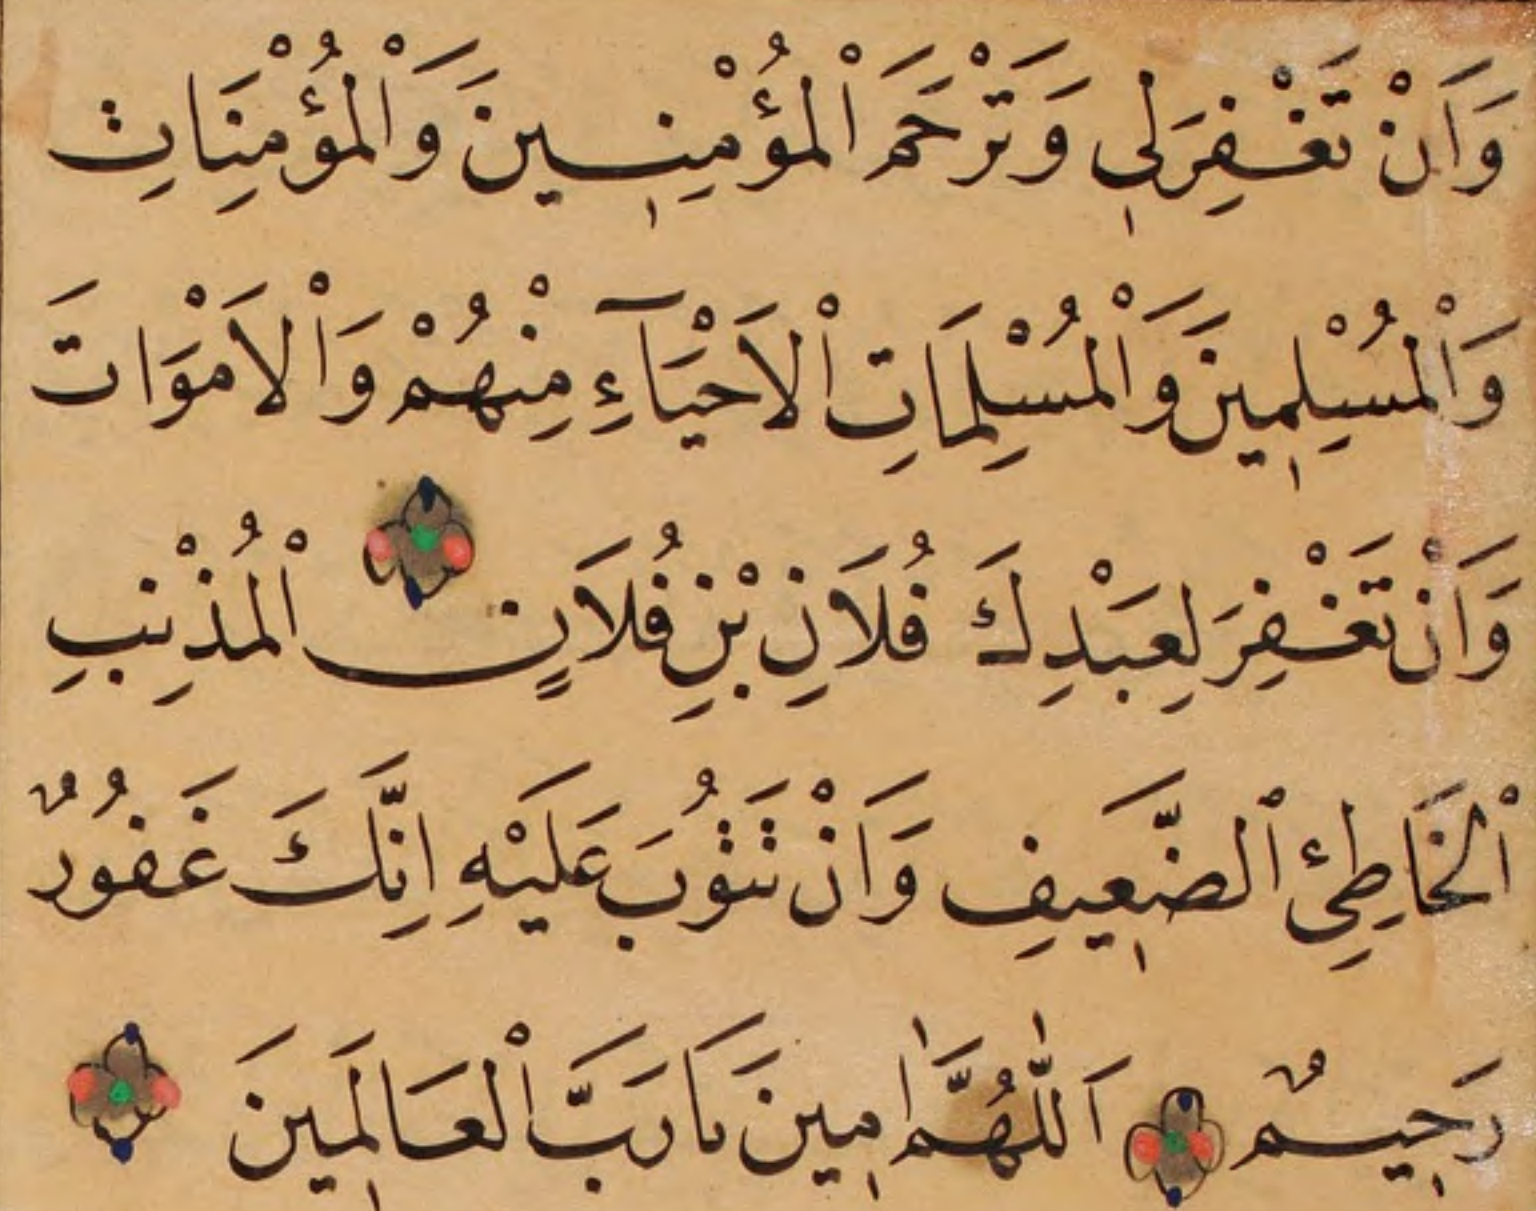 وَاَنْ تَغْفِرَلٖى وَتَرْحَمَ اْلمُؤْمِنٖينَ وَاْلمُؤْمِنَاتِ
وَاْلمُسْلِمٖينَ وَاْلمُسْلِمَاتِ اْلاَحْيَآءِ مِنْهُمْ وَاْلاَمْوَاتَ
وَاَنْ تَغْفِرَ لِعَبْدِكَ فُلاَنِ بْنِ فُلاَنٍ اْلمُذْنِبِ
اْلخَاطِئِ اْلضَّعٖيفِ وَاَنْ تَتُوْبَ عَلَيْهِ اِنَّكَ غَفُورٌ
رَحٖيمٌ اَللّٰهُمَّ اٰمٖينَ يَارَبَّ اْلعَالَمٖينَ